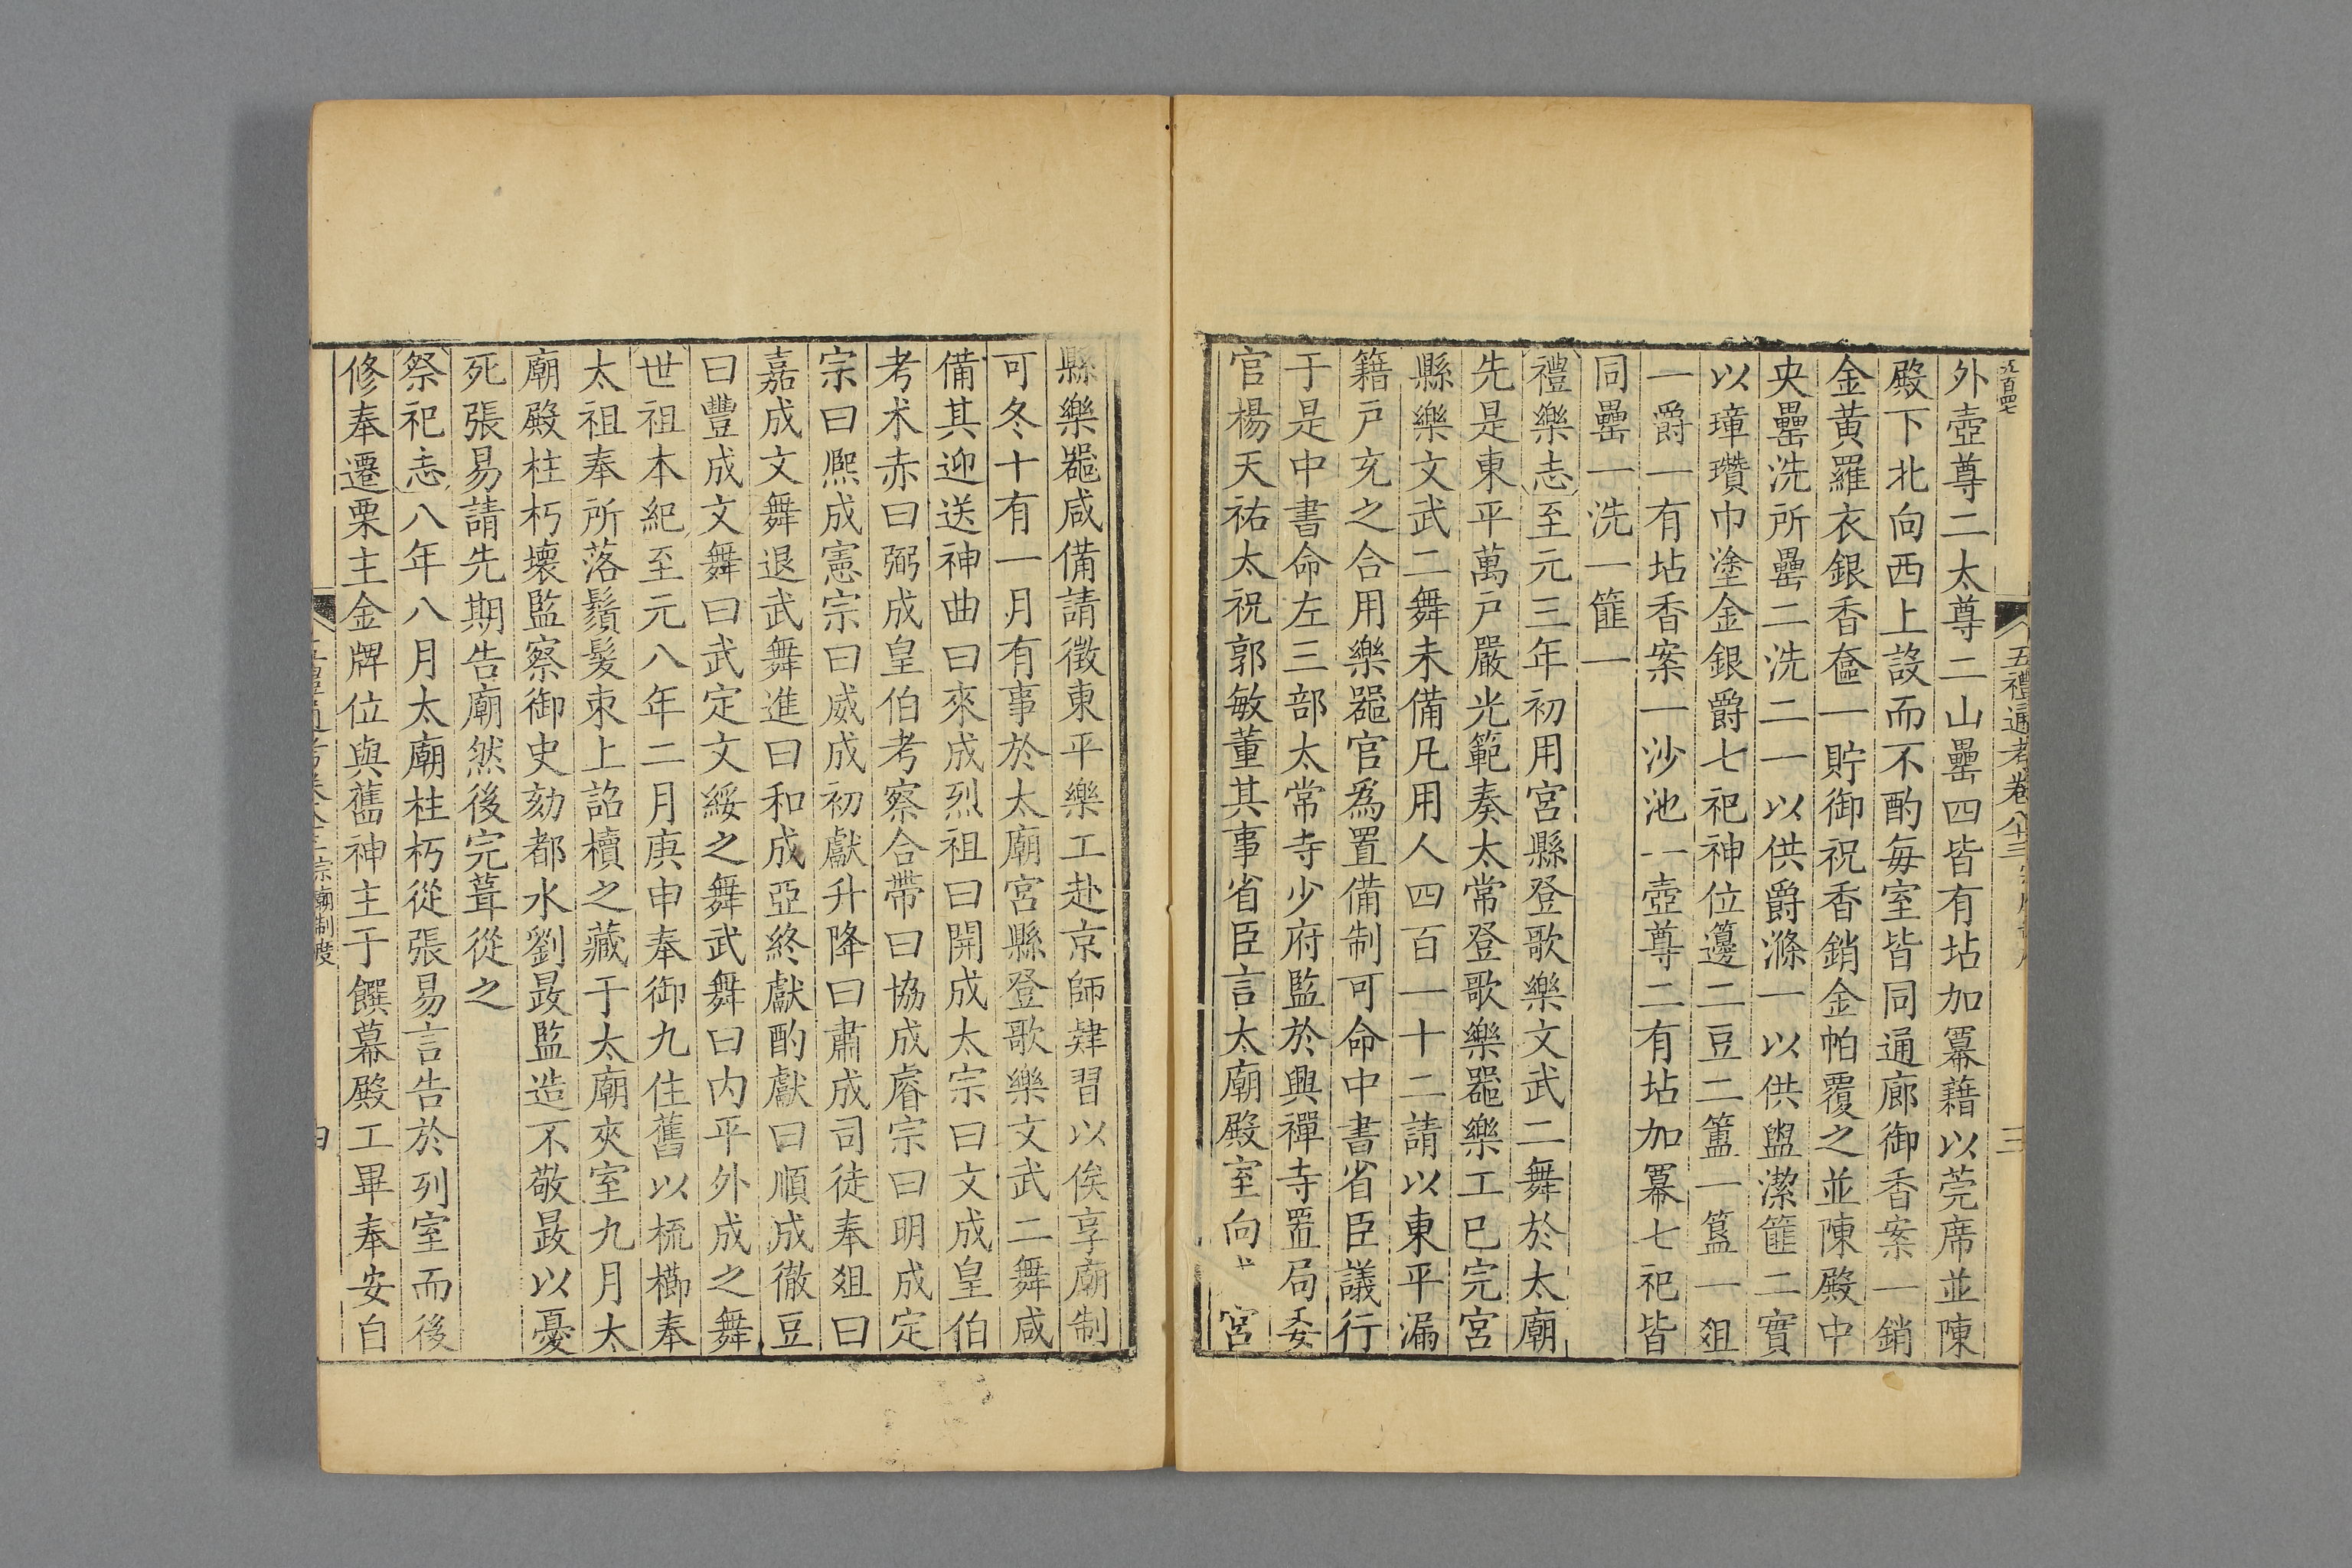 五禮通考卷八十三
三
外壺尊二太尊二山罍四皆有坫加冪藉以莞席並陳
殿下北向西上設而不酌每室皆同通廊御香案一銷
金黃羅衣銀香奩一貯御祝香銷金帕覆之並陳殿中
央罍洗所罍二洗二一以供爵滌一以供盥潔篚二實
以璋瓚巾塗金銀爵七祀神位籩二豆二簠一簋一俎
一爵一有坫香案一沙池一壺尊二有坫加冪七祀皆
同罍一洗一篚一
禮樂志至元三年初用宮縣登歌樂文武二舞於太廟
先是東平萬戶嚴光範奏太常登歌樂器樂工已完宮
縣樂文武二舞未備凡用人四百一十二請以東平漏
籍戶充之合用樂器官爲置備制可命中書省臣議行
于是中書命左三部太常寺少府監於興禪寺置局委
官楊天祐太祝郭敏董其事省臣言太廟殿室向 宮
縣樂器咸備請徵東平樂工赴京師肄習以俟享廟制
可冬十有一月有事於太廟宮縣登歌樂文武二舞咸
備其迎送神曲曰來成烈祖曰開成太宗曰文成皇伯
考朮赤曰弼成皇伯考察合帶曰協成睿宗曰明成定
宗曰熙成憲宗曰威成初獻升降曰肅成司徒奉俎曰
嘉成文舞退武舞進曰和成亞終獻酌獻曰順成徹豆
曰豐成文舞曰武定文綏之舞武舞曰内平外成之舞
世祖本紀至元八年二月庚申奉御九住舊以梳櫛奉
太祖奉所落鬚髮束上詔櫝之藏于太廟夾室九月太
廟殿柱朽壞監察御史劾都水劉晸監造不敬晸以憂
死張易請先期告廟然後完葺從之
祭祀志八年八月太廟柱朽從張易言告於列室而後
修奉遷栗主金牌位與舊神主于饌幕殿工畢奉安自
宗廟制度